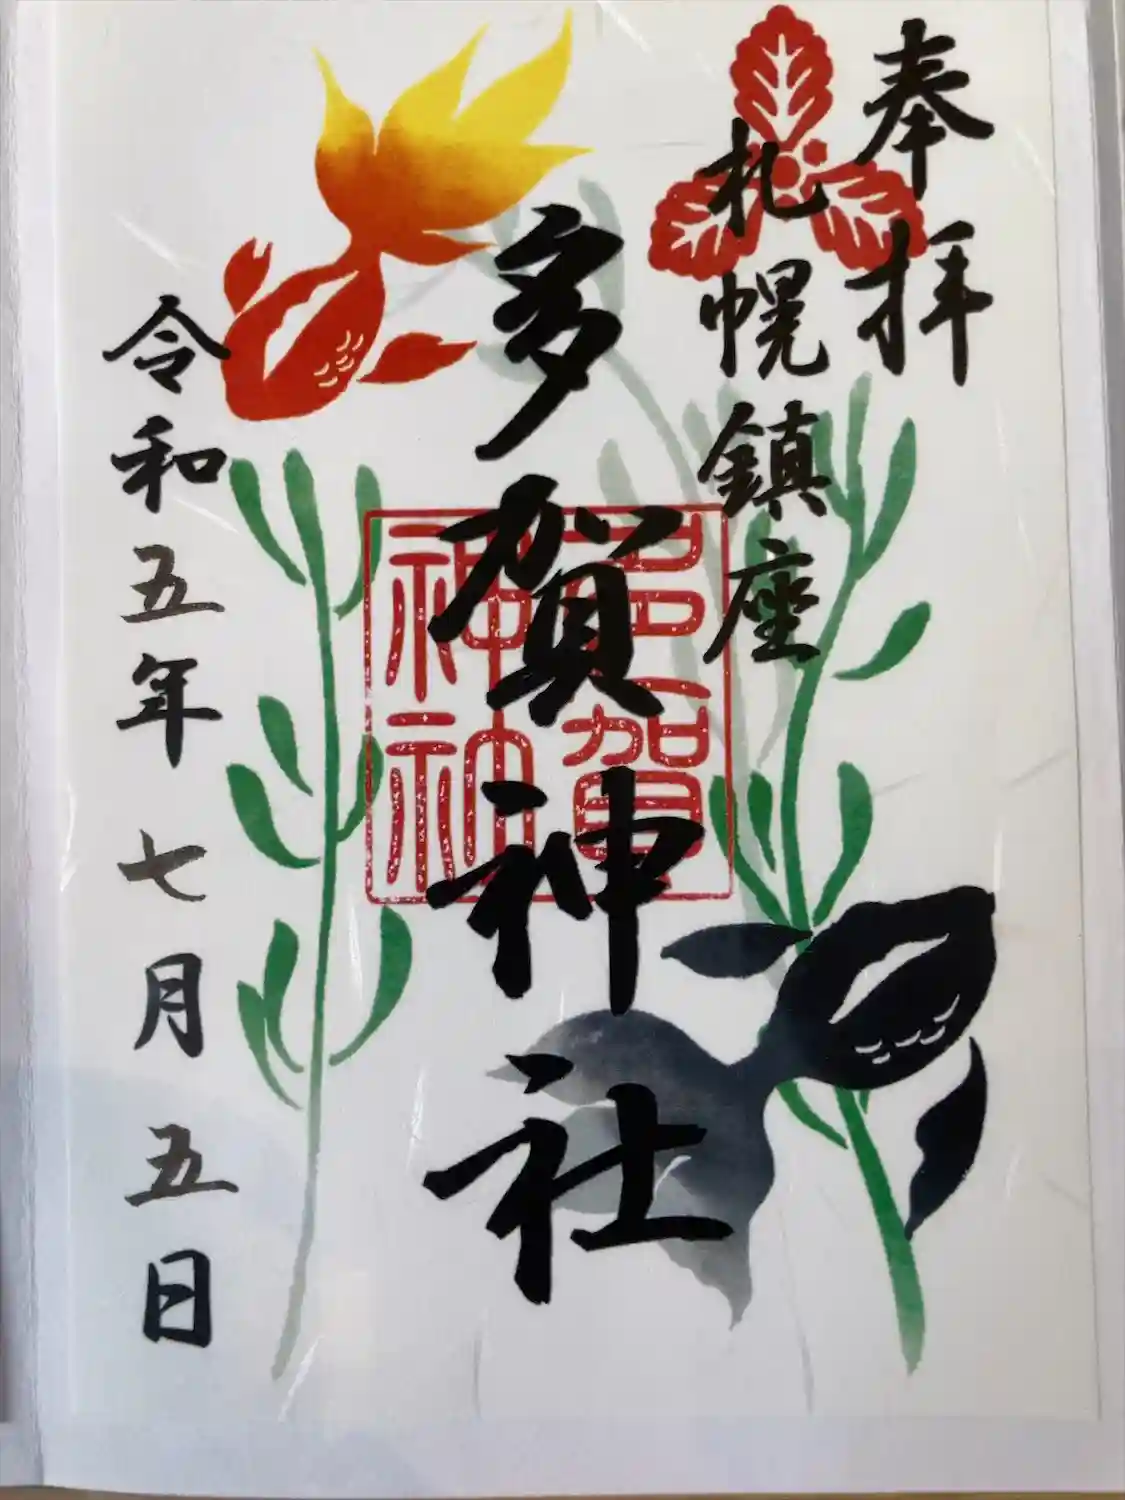 奉拝
札幌鎮座
多賀神社
多賀
神社
令和五年七月五日